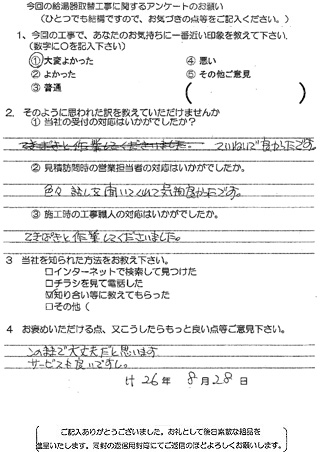 今回の給湯器取替工事に関するアンケートのお願い
(ひとつでも結構ですので、お気づきの点等をご記入ください。)
1、今回の工事で、あなたのお気持ちに一番近い印象を教えて下さい。
(数字に○を記入下さい)
①大変よかった ④ 悪い
② よかった ⑤ その他ご意見
③ 普通 ( )
2. そのように思われた訳を教えていただけませんか
① 当社の受付の対応はいかがでしたか?
てきぱきと作業してくださいました。 ていねいで良かったです。
② 見積訪問時の営業担当者の対応はいかがでしたか。
色々話しを聞いてくれて気持良かったです。
③ 施工時の工事職人の対応はいかがでしたか。
てきぱきと作業してくださいました。
3 当社を知られた方法をお教え下さい。
□インターネットで検索して見つけた
□チラシを見て電話した
☑知り合い等に教えてもらった
□その他 (
4 お褒めいただける点、又こうしたらもっと良い点等ご意見下さい。
このままで大丈夫だと思います
サービスも良いですし。
H 26年 8月 28日
ご記入ありがとうございました。お礼として後日素敵な粗品を
進呈いたします。同封の返信用封筒にてご返信のほどよろしくお願いします。